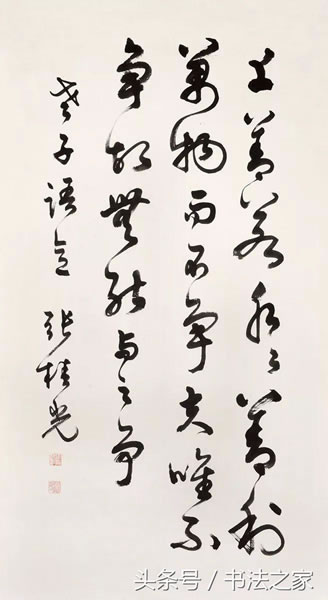 上善若水〻善利
萬物而不争夫唯不
争故無能与之争
老子語
張桂光
头条号 / 书法之家